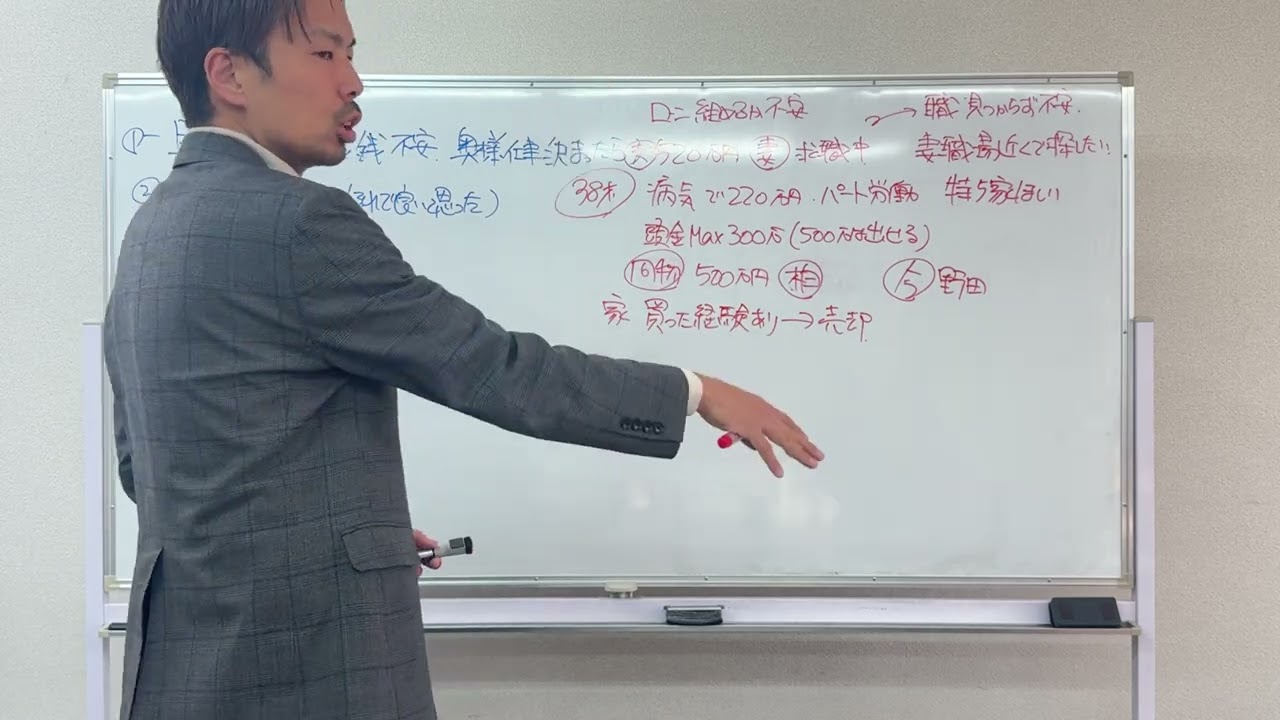 ローン組めるか不安 → 職見つからず不安.
① 銭不安. 奥様仕事決まったら 20万円 妻 求職中 妻職場近くで探したい
② (それで良いと思った)
38才 病気で220万円. パート労働 持ち家ほしい
頭金Max300万(500万は出せる)
500万円 相 野田
家 買った経験あり→売却.